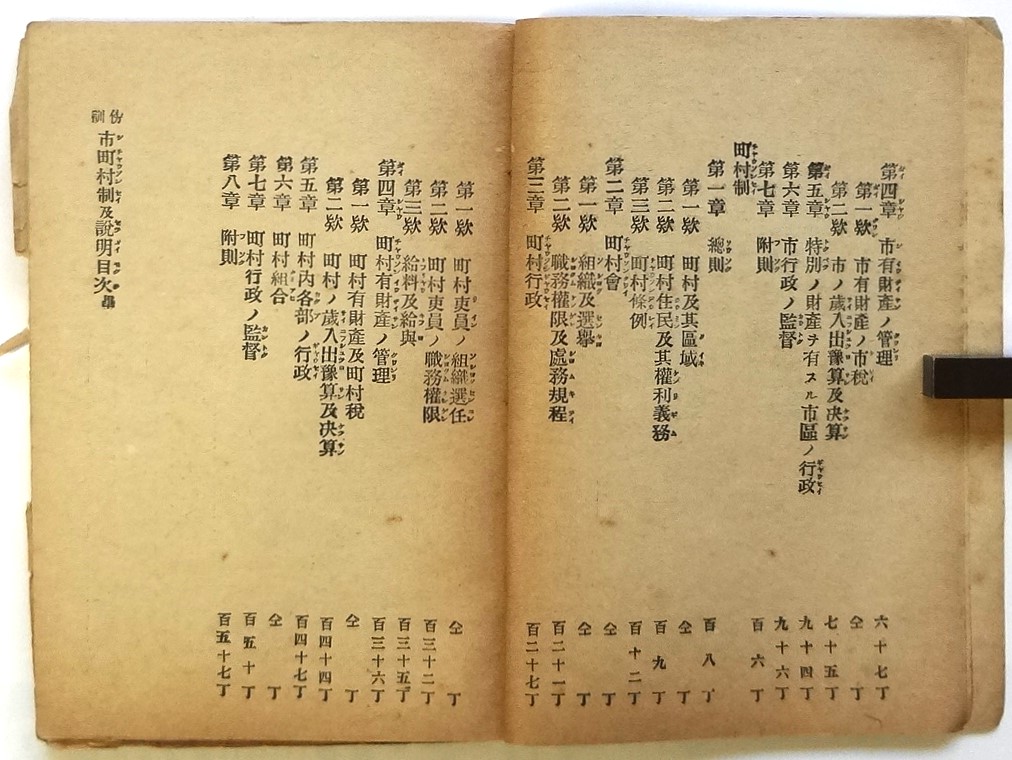 第四章 市有財産ノ管理 六十七丁
第一欵 市有財産ノ市税 仝丁
第二欵 市ノ歳入出豫算及决算 七十五丁
第五章 特別ノ財産ヲ有スル市區ノ行政 九十四丁
第六章 市行政ノ監督 九十六丁
第七章 附則 百六丁
町村制
第一章 總則 百八丁
第一欵 町村及其區域 仝丁
第二欵 町村住民及其權利義務 百九丁
第三欵 町村條例 百十二丁
第二章 町村會 仝丁
第一欵 組織及選擧 仝丁
第二欵 職務權限及處務規程 百二十一丁
第三章 町村行政 百二十七丁
第一欵 町村吏員ノ組織選任 仝丁
第二欵 町村吏員ノ職務權限 百三十二丁
第三欵 給料及給與 百三十五丁
第四章 町村有財産ノ管理 百三十六丁
第一欵 町村有財産及町村税 仝丁
第二欵 町村ノ歳入出豫算及决算 百四十四丁
第五章 町村內各部ノ行政 百四十七丁
第六章 町村組合 仝丁
第七章 町村行政ノ監督 百五十丁
第八章 附則 百五十七丁
傍訓 市町村制及説明目次畢